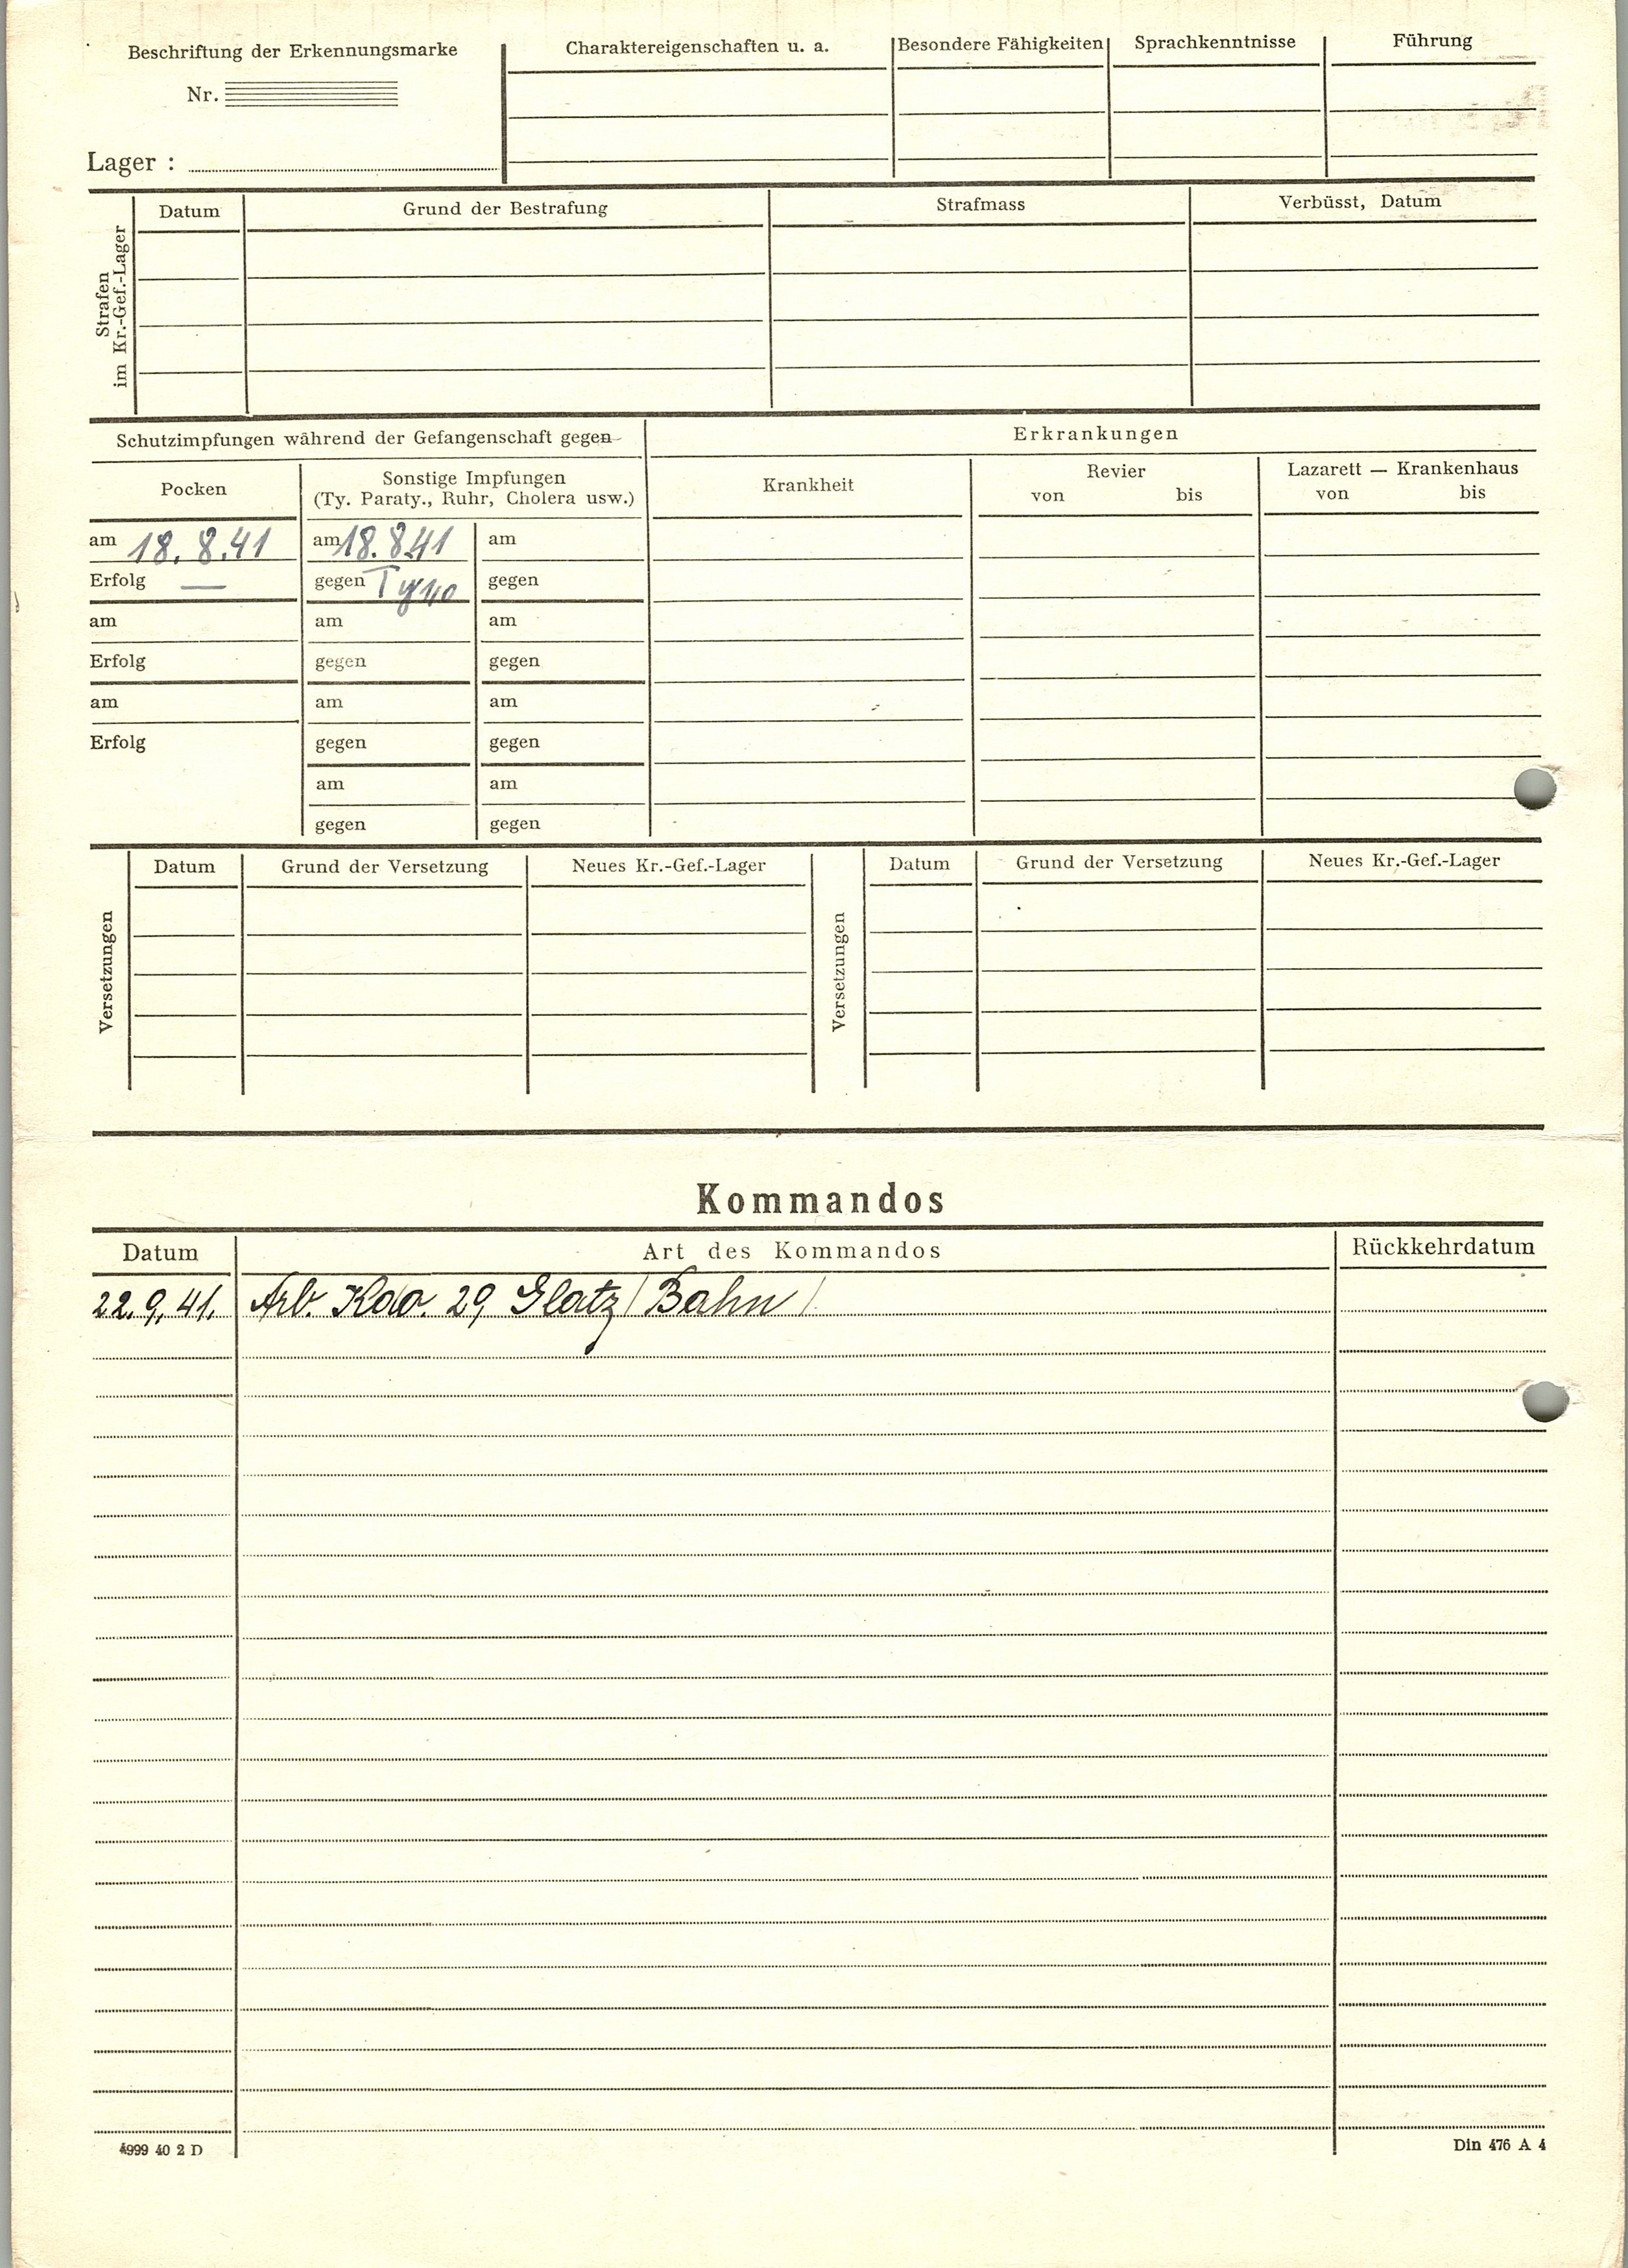 Beschriftung der Erkennungsmarke
Nr.
Lager :
Charaktereigenschaften u. a.
Besondere Fähigkeiten
Sprachkenntnisse
Führung
Strafen
im Kr.-Gef.-Lager
Datum
Grund der Bestrafung
Strafmass
Verbüsst, Datum
Schutzimpfungen während der Gefangenschaft gegen
Erkrankungen
Pocken
Sonstige Impfungen
(Ty. Paraty., Ruhr, Cholera usw.)
Krankheit
Revier
von bis
Lazarett — Krankenhaus
von bis
am 18. 8.41 am 18.8.41 am
Erfolg — gegen gegen
am am am
Erfolg gegen gegen
am am am
Erfolg gegen gegen
am am
gegen gegen
Versetzungen
Datum
Grund der Versetzung
Neues Kr.-Gef.-Lager
Versetzungen
Datum
Grund der Versetzung
Neues Kr.-Gef.-Lager
Kommandos
Datum Art des Kommandos Rückkehrdatum
22.9.41. Arb. Kdo. 29 Glatz / Bahn /
4999 40 2 D
Din 476 A 4